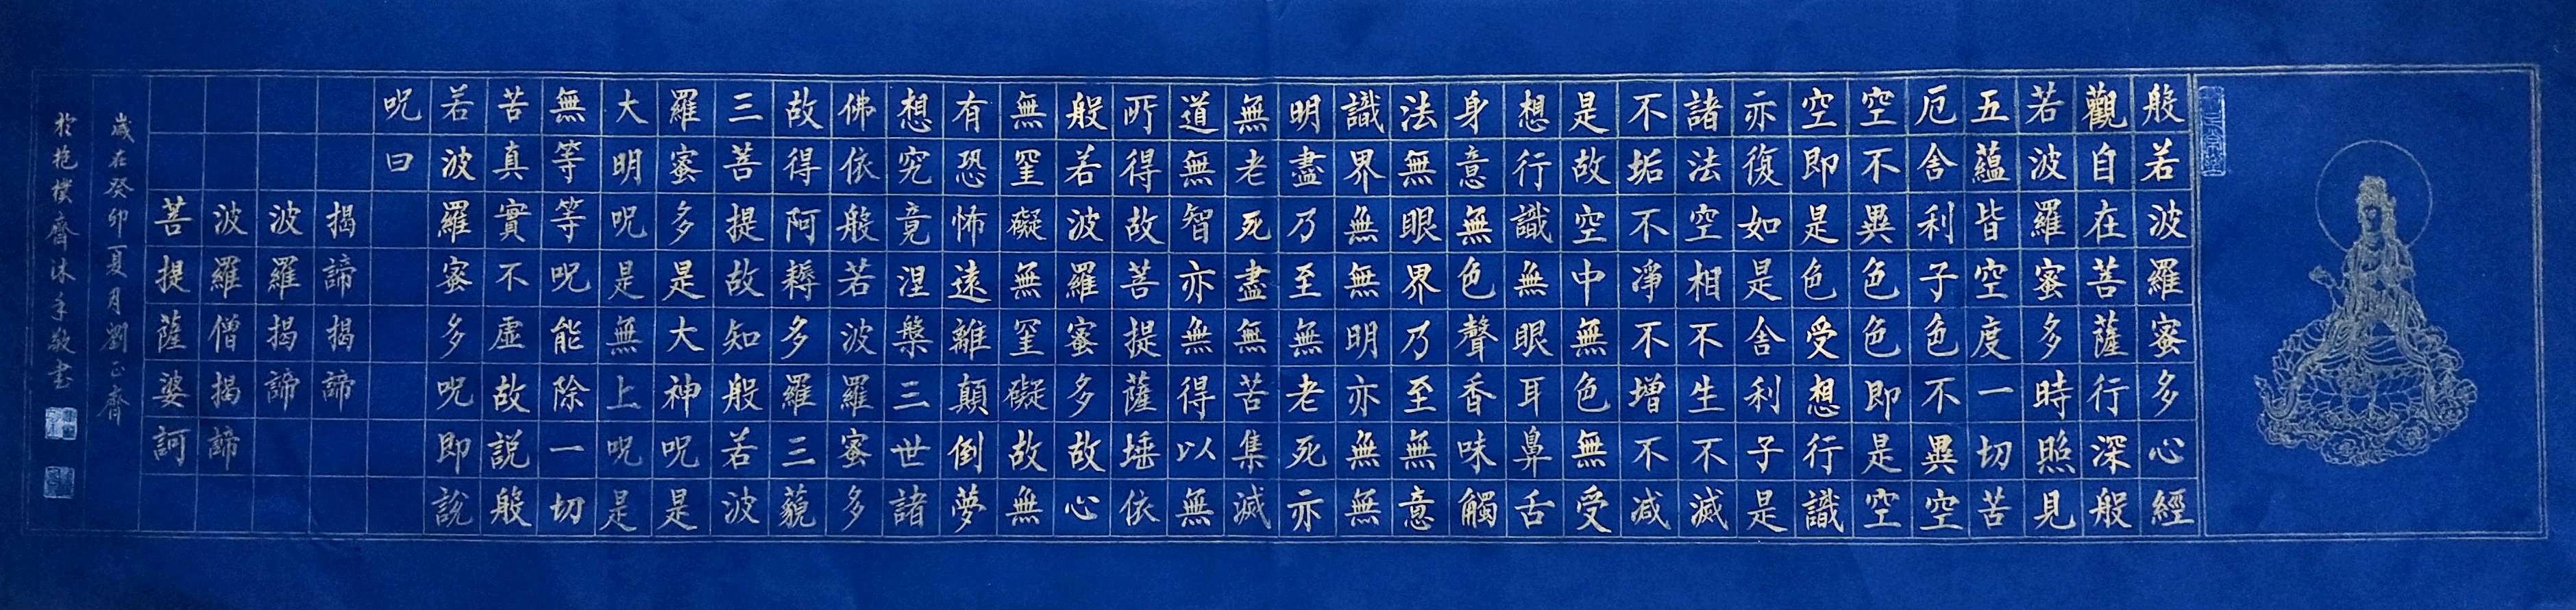 般若波羅蜜多心經
觀自在菩薩行深般
若波羅蜜多時照見
五蘊皆空度一切苦
厄舍利子色不異空
空不異色色即是空
空即是色受想行識
亦復如是舍利子是
諸法空相不生不滅
不垢不淨不增不減
是故空中無色無受
想行識無眼耳鼻舌
身意無色聲香味觸
法無眼界乃至無意
識界無無明亦無無
明盡乃至無老死亦
無老死盡無苦集滅
道無智亦無得以無
所得故菩提薩埵依
般若波羅蜜多故心
無罣礙無罣礙故無
有恐怖遠離顛倒夢
想究竟涅槃三世諸
佛依般若波羅蜜多
故得阿耨多羅三藐
三菩提故知般若波
羅蜜多是大神呪是
大明呪是無上呪是
無等等呪能除一切
苦真實不虛故說般
若波羅蜜多呪即說
呪曰
揭諦揭諦
波羅揭諦
波羅僧揭諦
菩提薩婆訶
歲在癸卯夏月劉正齋
於抱樸齋沐手敬書